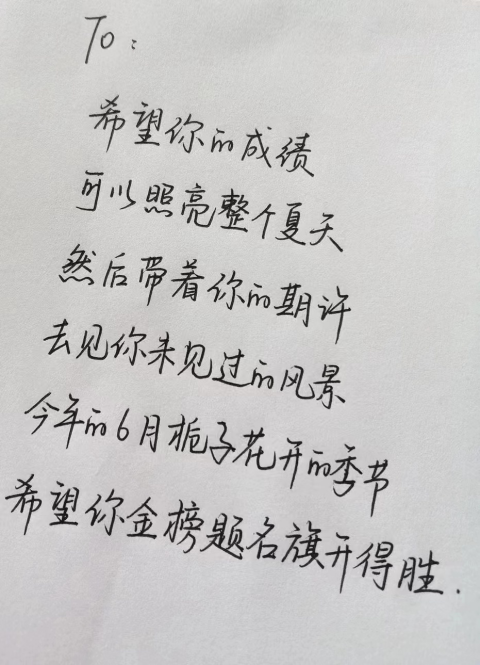 To:
希望你的成绩
可以照亮整个夏天
然后带着你的期许
去见你未见过的风景
今年的6月栀子花开的季节
希望你金榜题名旗开得胜.